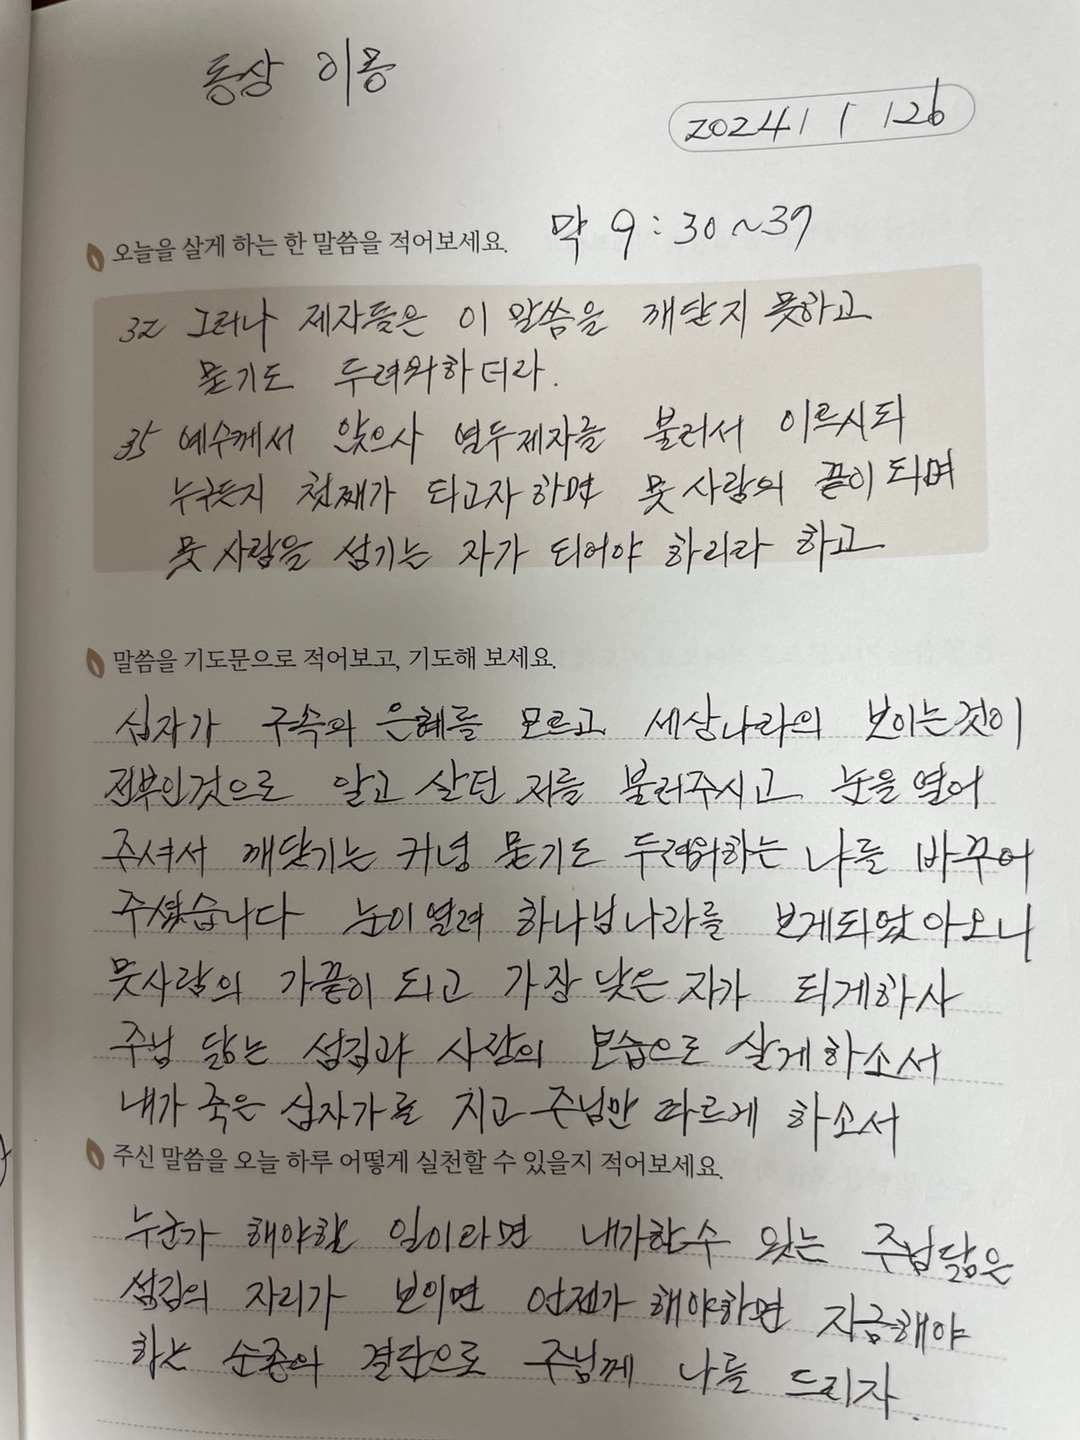 동상 이몽
2024 1 1 126
막 9 : 30 ~ 37
오늘을 살게 하는 한 말씀을 적어보세요.
32 그러나 제자들은 이 말씀을 깨닫지 못하고
묻기도 두려워하더라.
35 예수께서 앉으사 열두제자를 불러서 이르시되
누구든지 첫째가 되고자 하면 뭇 사람의 끝이 되며
뭇 사람을 섬기는 자가 되어야 하리라 하고
말씀을 기도문으로 적어보고, 기도해 보세요.
십자가 구속의 은혜를 모르고 세상나라의 보이는것이
전부인것으로 알고 살던 저를 불러주시고 눈을 열어
주셔서 깨닫기는 커녕 묻기도 두려워하는 나를 바꾸어
주셨습니다 눈이열려 하나님나라를 보게되었아오니
뭇사람의 가끝이 되고 가장 낮은 자가 되게하사
주님 닮는 섬김과 사랑의 모습으로 살게하소서
내가 죽은 십자가를 지고 주님만 따르게 하소서
주신 말씀을 오늘 하루 어떻게 실천할 수 있을지 적어보세요.
누군가 해야할 일이라면 내가할수 있는 주님닮은
섬김의 자리가 보이면 언젠가 해야하면 지금해야
하는 순종의 결단으로 주님께 나를 드리자.